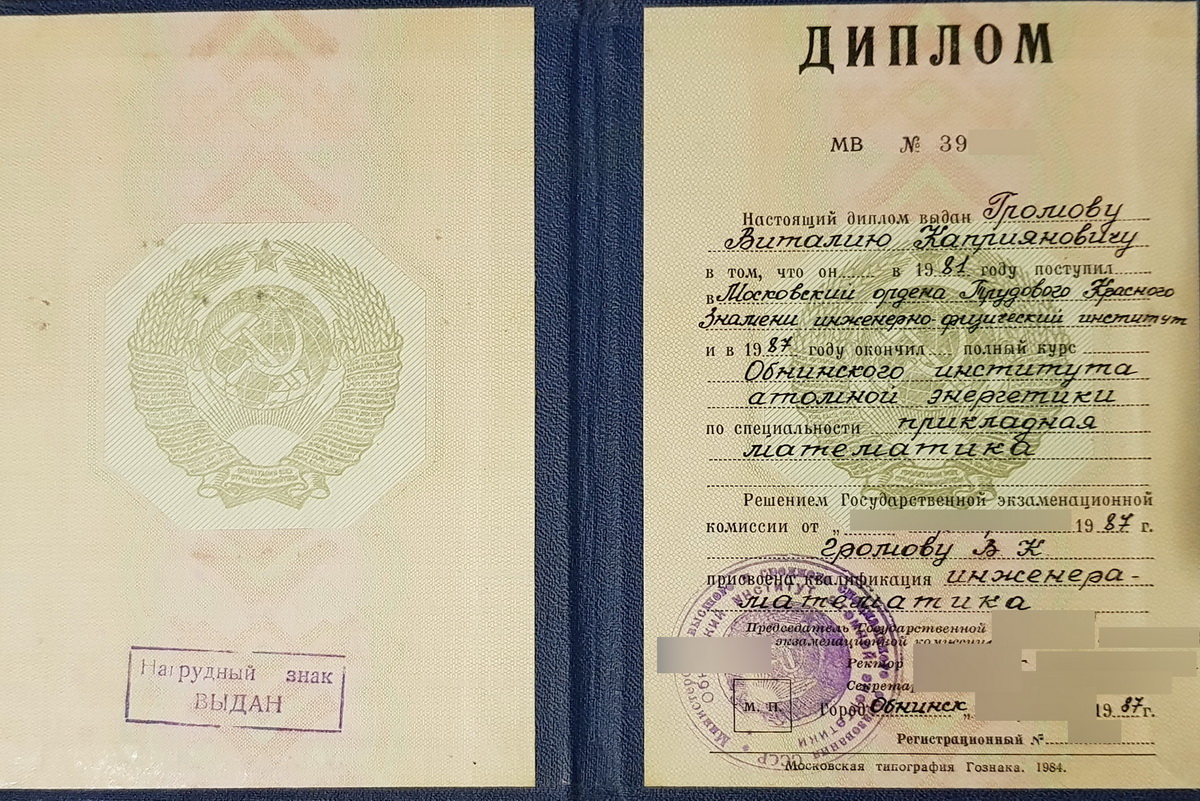 Нагрудный знак
ВЫДАН
ДИПЛОМ
МВ № 39
Настоящий диплом выдан Громову
Виталию Каприяновичу
в том, что он в 1981 году поступил
в Московский ордена Трудового Красного
Знамени инженерно-физический институт
и в 1987 году окончил полный курс
Обнинского института
атомной энергетики
по специальности прикладная
математика
Решением Государственной экзаменационной
комиссии от „ 1987 г.
Громову В К
присвоена квалификация инженера-
математика
Председатель Государственной
экзаменационной комиссии
Ректор
Секретар
М. П.
Город Обнинск „ 1987 г.
Регистрационный №
Московская типография Гознака. 1984.